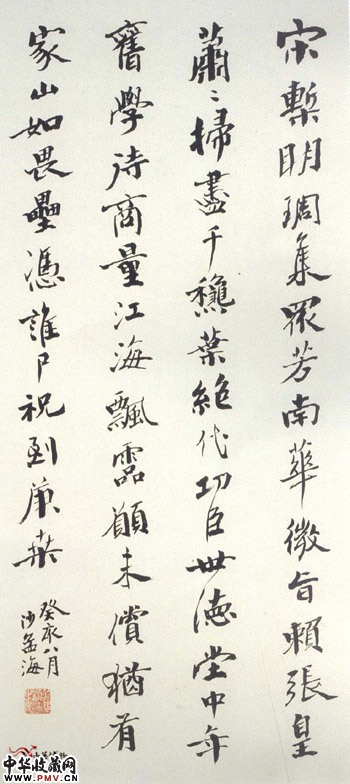 宋槧明琱集眾芳南華微旨賴張皇
蕭〻掃盡千穐葉絕代功臣世德堂中年
舊學待商量江海飄霝願未償猶有
家山如畏壘憑誰尸祝到庚桑
癸亥八月
沙孟海
中华收藏网
www.PMV.CN